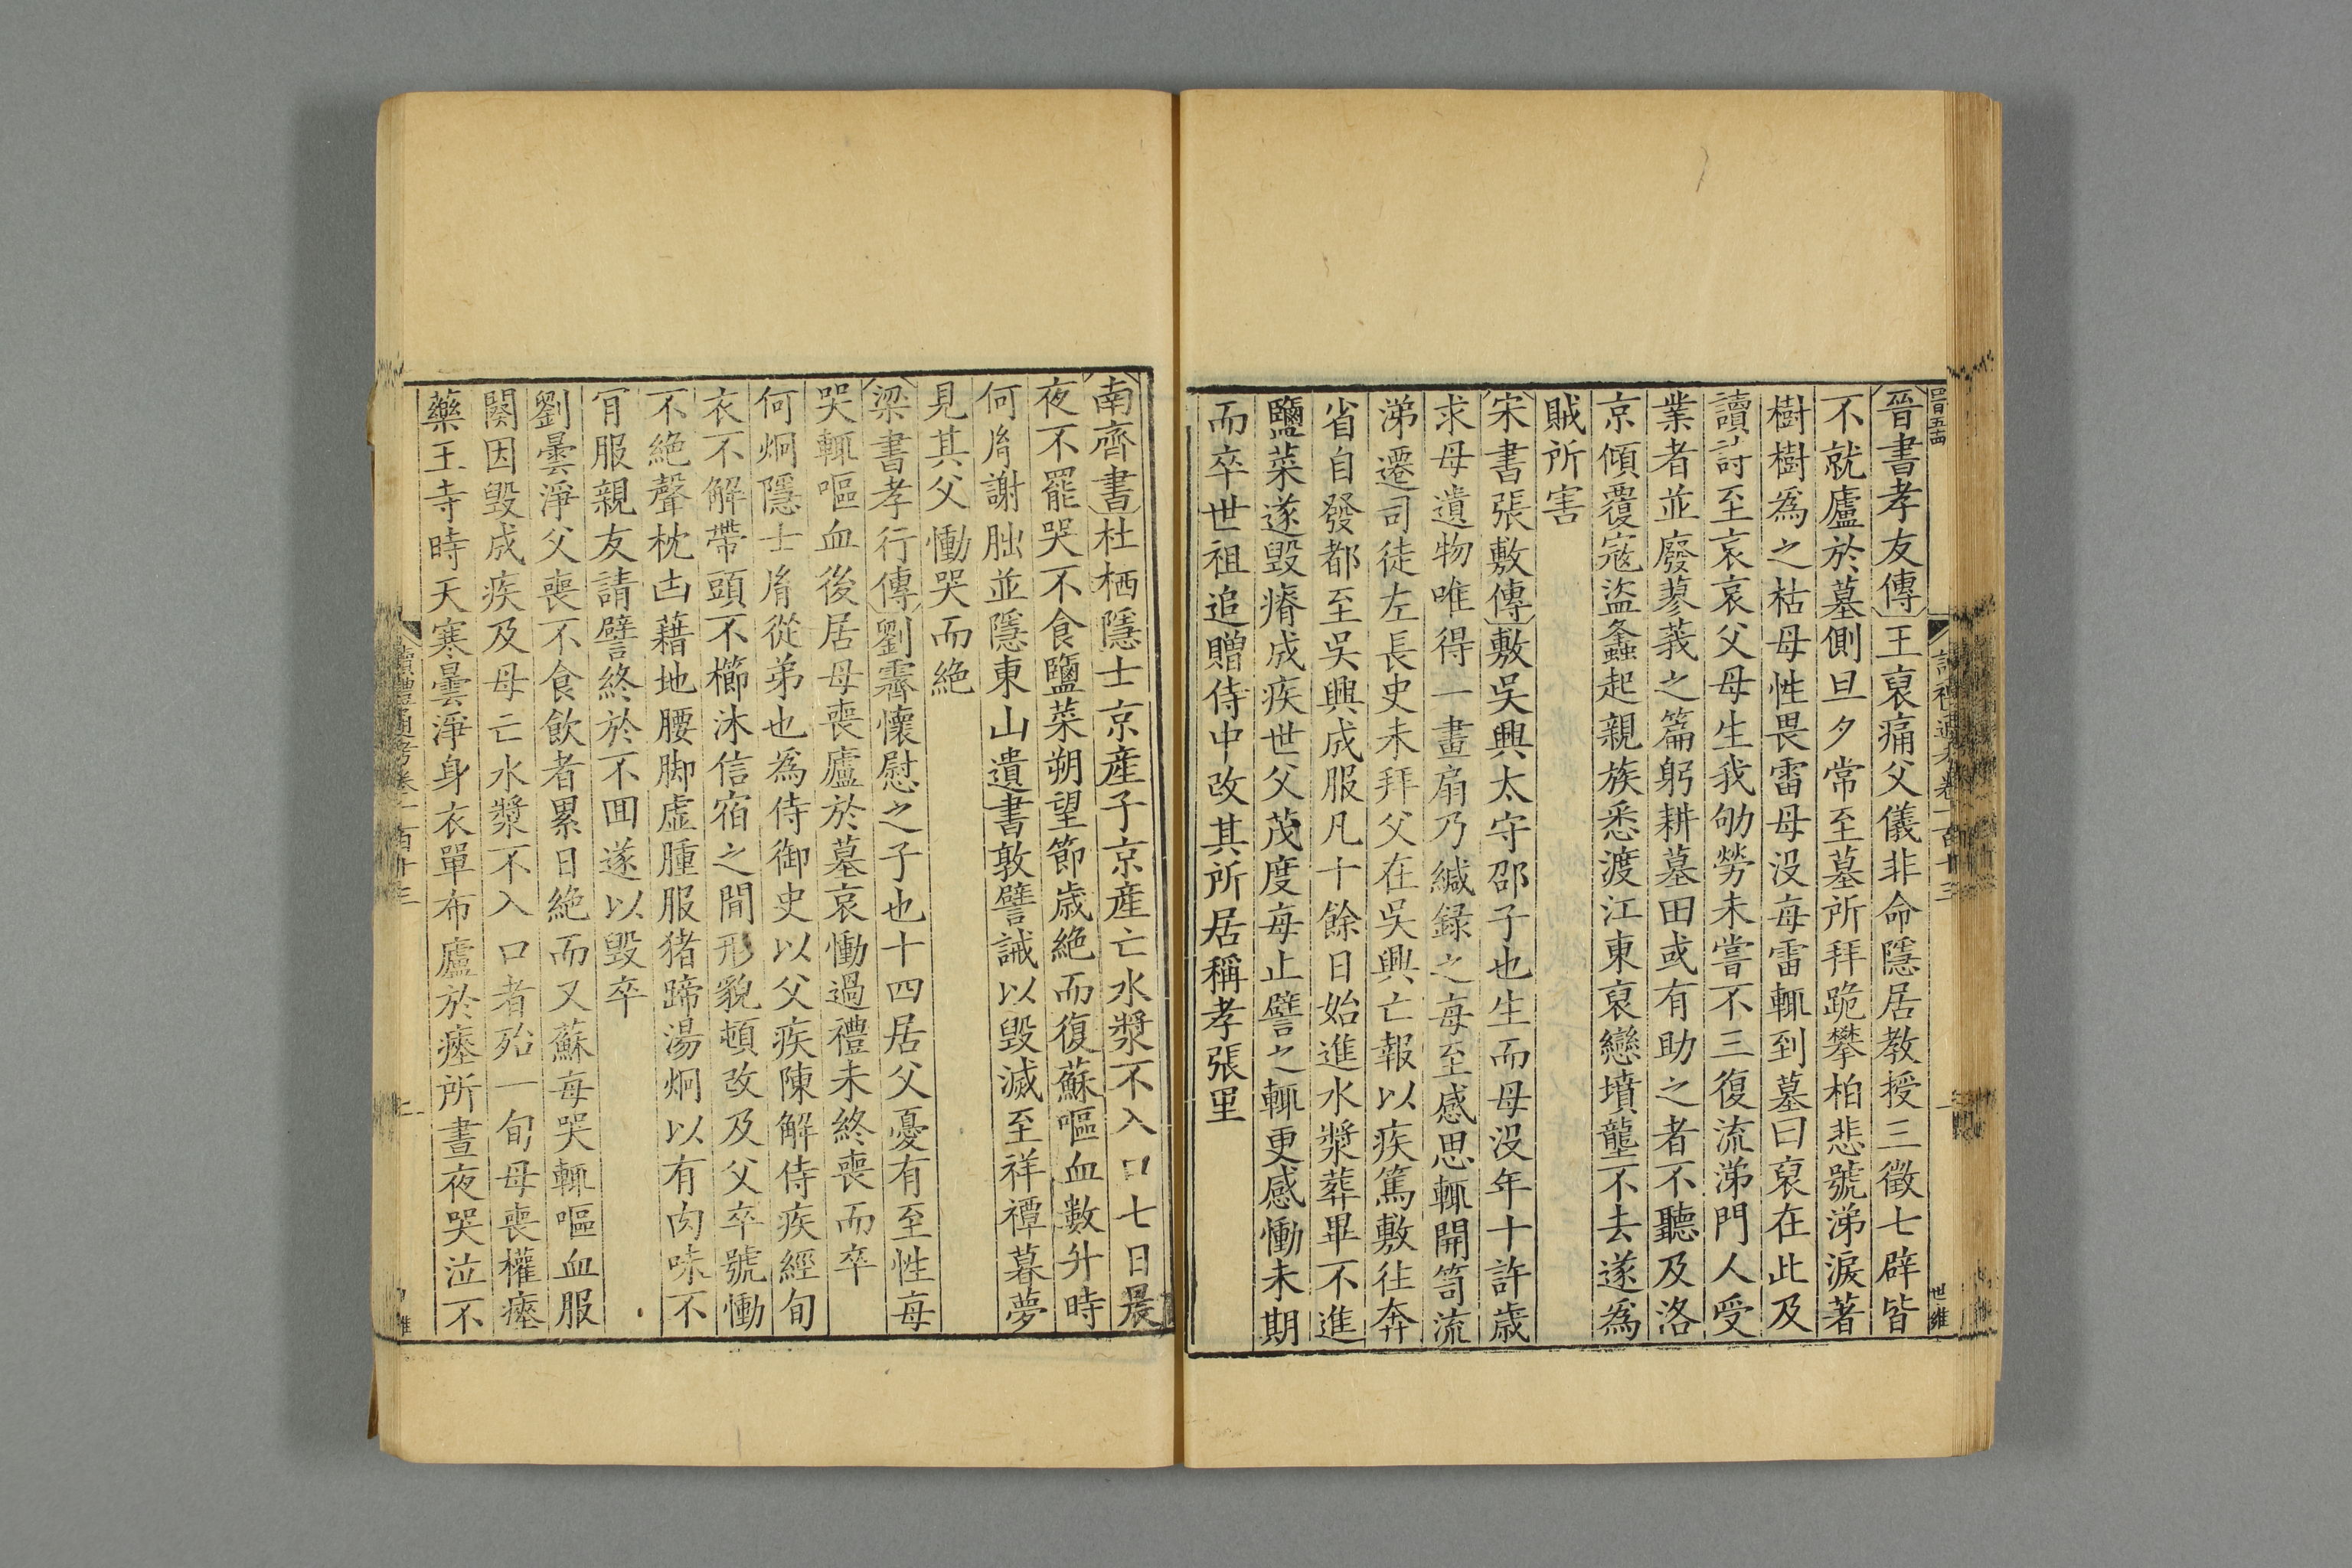 晉書孝友傳王裒痛父儀非命隱居教授三徵七辟皆
不就廬於墓側旦夕常至墓所拜跪攀柏悲號涕淚著
樹樹為之枯母性畏雷母没每雷輒到墓曰裒在此及
讀詩至哀哀父母生我劬勞未嘗不三復流涕門人受
業者並廢蓼莪之篇躬耕墓田或有助之者不聽及洛
京傾覆寇盜蠭起親族悉渡江東裒戀墳壠不去遂為
賊所害
宋書張敷傳敷吳興太守邵子也生而母没年十許歲
求母遺物唯得一畫扇乃緘録之每至感思輒開笥流
涕遷司徒左長史未拜父在吳興亡報以疾篤敷往奔
省自發都至吳興成服凡十餘日始進水漿葬畢不進
鹽菜遂毀瘠成疾世父茂度每止譬之輒更感慟未期
而卒世祖追贈侍中改其所居稱孝張里
南齊書杜栖隱士京産子京産亡水漿不入口七日晨
夜不罷哭不食鹽菜朔望節歲絶而復蘇嘔血數升時
何胤謝朏並隱東山遺書敦譬誡以毀滅至祥禫暮夢
見其父慟哭而絶
梁書孝行傳劉霽懷慰之子也十四居父憂有至性每
哭輒嘔血後居母喪廬於墓哀慟過禮未終喪而卒
何炯隱士胤從弟也為侍御史以父疾陳解侍疾經旬
衣不解帶頭不櫛沐信宿之間形貌頓改及父卒號慟
不絶聲枕凷藉地腰脚虛腫服猪蹄湯炯以有肉味不
肎服親友請譬終於不回遂以毀卒
劉曇淨父喪不食飲者累日絶而又蘇每哭輒嘔血服
闋因毀成疾及母亡水漿不入口者殆一旬母喪權瘞
藥王寺時天寒曇淨身衣單布廬於瘞所晝夜哭泣不
讀禮通考卷一百十三